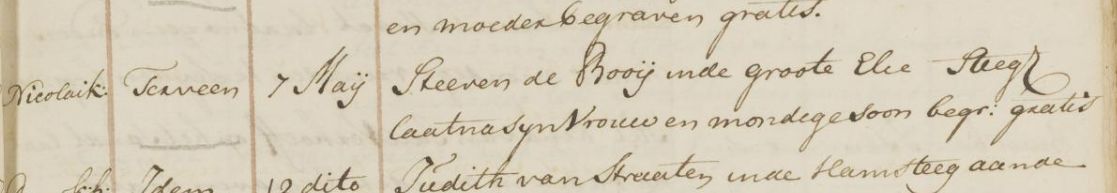 en moeder begraven gratis.
Nicolaik: Terveen 7 Maÿ Steeven de Rooÿ inde groote Elie Steeg
laat na syn Vrouw en mondige soon begr: gratis
Idem 12 dito Judith van Straaten inde Hamsteeg aande